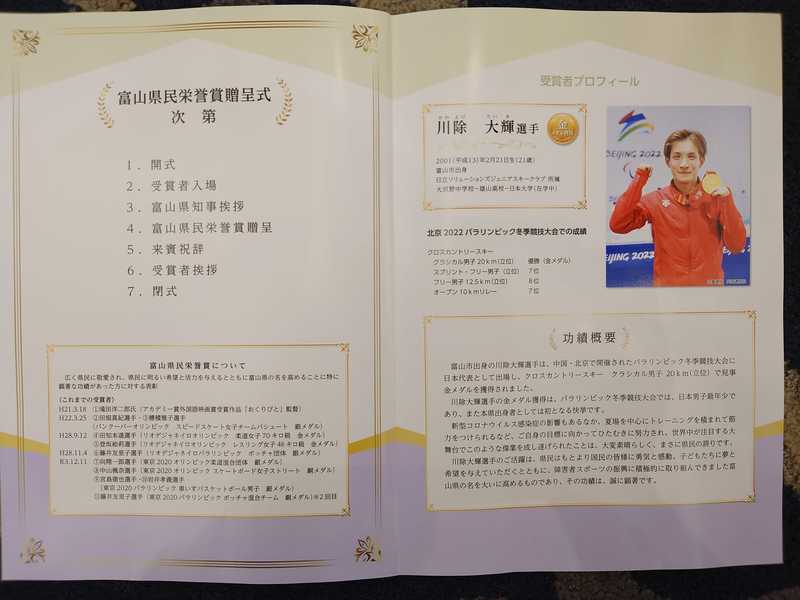 富山県民栄誉賞贈呈式
次 第
1．開式
2．受賞者入場
3．富山県知事挨拶
4．富山県民栄誉賞贈呈
5．来賓祝辞
6．受賞者挨拶
7．閉式
富山県民栄誉賞について
広く県民に敬愛され、県民に明るい希望と活力を与えるとともに富山県の名を高めることに特に
顕著な功績があった方に対する表彰
（これまでの受賞者）
H21.3.18 ①滝田洋二郎氏（アカデミー賞外国語映画賞受賞作品「おくりびと」監督）
H22.3.25 ②田畑真紀選手・③穂積雅子選手
（バンクーバーオリンピック スピードスケート女子チームパシュート 銀メダル）
H28.9.12 ④田知本遥選手（リオデジャネイロオリンピック 柔道女子70キロ級 金メダル）
⑤登坂絵莉選手（リオデジャネイロオリンピック レスリング女子48キロ級 金メダル）
H28.11.4 ⑥藤井友里子選手（リオデジャネイロパラリンピック ボッチャ団体 銀メダル）
R3.12.11 ⑦向翔一郎選手（東京2020オリンピック柔道混合団体 銀メダル）
⑧中山楓奈選手（東京2020オリンピック スケートボード女子ストリート 銅メダル）
⑨宮島徹也選手・⑩岩井孝義選手
（東京2020パラリンピック 車いすバスケットボール男子 銀メダル）
⑪藤井友里子選手（東京2020パラリンピック ボッチャ混合チーム 銅メダル）※2回目
受賞者プロフィール
かわ よけ たい き
川除 大輝選手
金
2001（平成13）年2月21日生（21歳）
富山市出身
日立ソリューションズジュニアスキークラブ 所属
大沢野中学校－雄山高校－日本大学（在学中）
北京2022パラリンピック冬季競技大会での成績
クロスカントリースキー
クラシカル男子20km（立位） 優勝（金メダル）
スプリント・フリー男子（立位） 7位
フリー男子12.5km（立位） 8位
オープン10kmリレー 7位
BEIJING 2022
BEIJING 2022
功績概要
富山市出身の川除大輝選手は、中国・北京で開催されたパラリンピック冬季競技大会に
日本代表として出場し、クロスカントリースキー クラシカル男子20km（立位）で見事
金メダルを獲得されました。
川除大輝選手の金メダル獲得は、パラリンピック冬季競技大会では、日本男子最年少で
あり、また本県出身者としては初となる快挙です。
新型コロナウイルス感染症の影響もあるなか、夏場を中心にトレーニングを積まれて筋
力をつけられるなど、ご自身の目標に向かってひたむきに努力され、世界中が注目する大
舞台でこのような偉業を成し遂げられたことは、大変素晴らしく、まさに県民の誇りです。
川除大輝選手のご活躍は、県民はもとより国民の皆様に勇気と感動、子どもたちに夢と
希望を与えていただくとともに、障害者スポーツの振興に積極的に取り組んできました富
山県の名を大いに高めるものであり、その功績は、誠に顕著です。